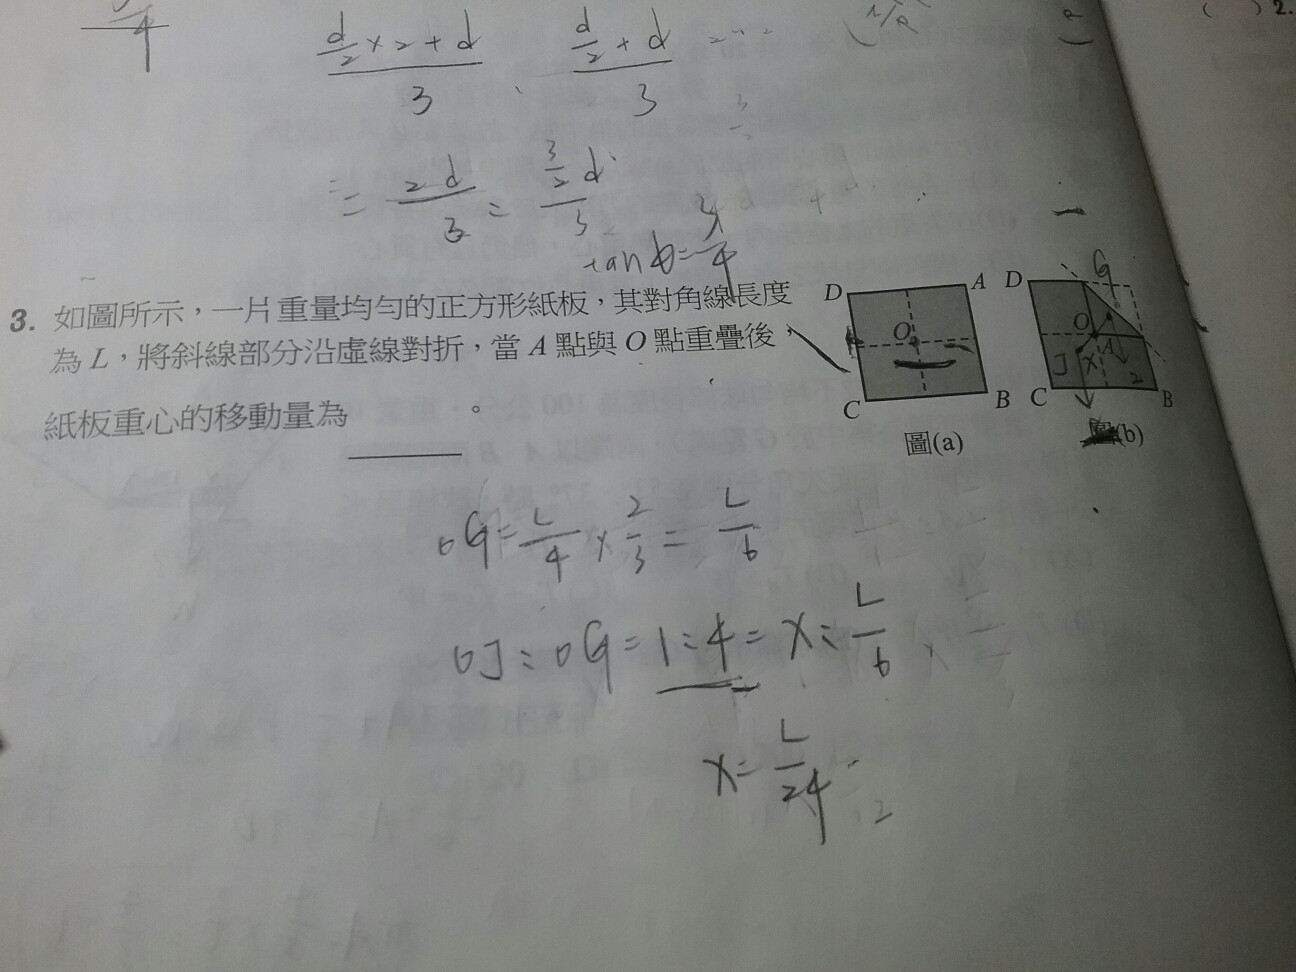 d/2 × 2 + d / 3 、 d/2 + d / 3
= 2d / 3 = 3/2 d / 3
tanθ=
3. 如圖所示，一片重量均勻的正方形紙板，其對角線長度
為 L，將斜線部分沿虛線對折，當 A 點與 O 點重疊後，
紙板重心的移動量為 ________ 。
D A D G
O O A
J X 2
C B C B
圖(a) 圖(b)
OG = L/4 × 2/3 = L/6
OJ : OG = 1 : 4 = X : L/6
X = L/24
2.